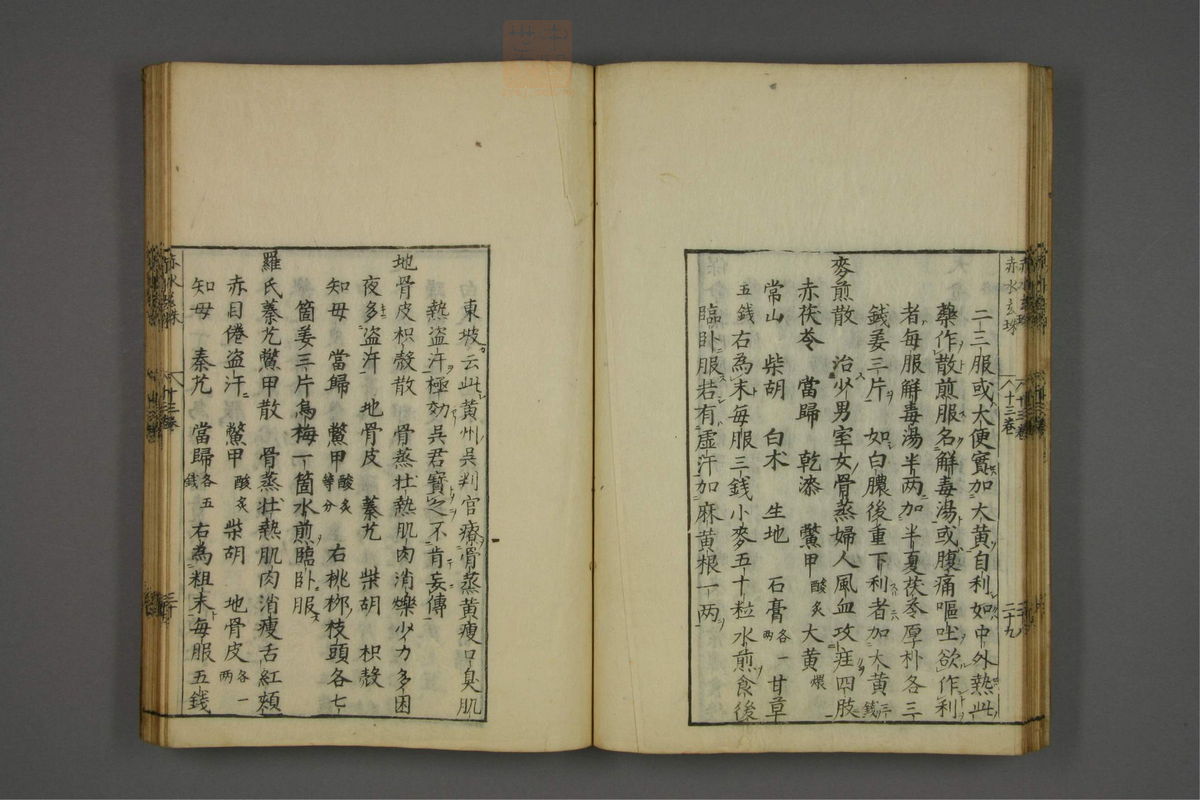 赤水玄珠 八十三卷 二十九
二三服或大便實加大黃自利如中外熱此
藥作散煎服名解毒湯或腹痛嘔吐欲作利
者每服解毒湯半两加半夏茯苓厚朴各三
錢姜三片 如白膿後重下利者加大黃三錢
麥煎散 治少男室女骨蒸婦人風血攻疰四肢
赤茯苓 當歸 乾漆 鱉甲酸炙 大黃煨
常山 柴胡 白术 生地 石膏各一两 甘草
五錢右為末每服三錢小麥五十粒水煎食後
臨卧服若有虛汗加麻黃根一两
東坡云此黃州吳判官療骨蒸黃瘦口臭肌
熱盜汗極効吳君寳之不肯妄傳
地骨皮枳殼散 骨蒸壮熱肌肉消爍少力多困
夜多盜汗 地骨皮 蓁艽 柴胡 枳殼
知母 當歸 鱉甲酸炙等分 右桃栁枝頭各七
箇姜三片烏梅一箇水煎臨卧服
羅氏蓁艽鱉甲散 骨蒸壮熱肌肉消瘦舌紅頰
赤目倦盜汗 鱉甲酸炙 柴胡 地骨皮各一两
知母 秦艽 當歸各五錢 右為粗末每服五錢
赤水玄珠